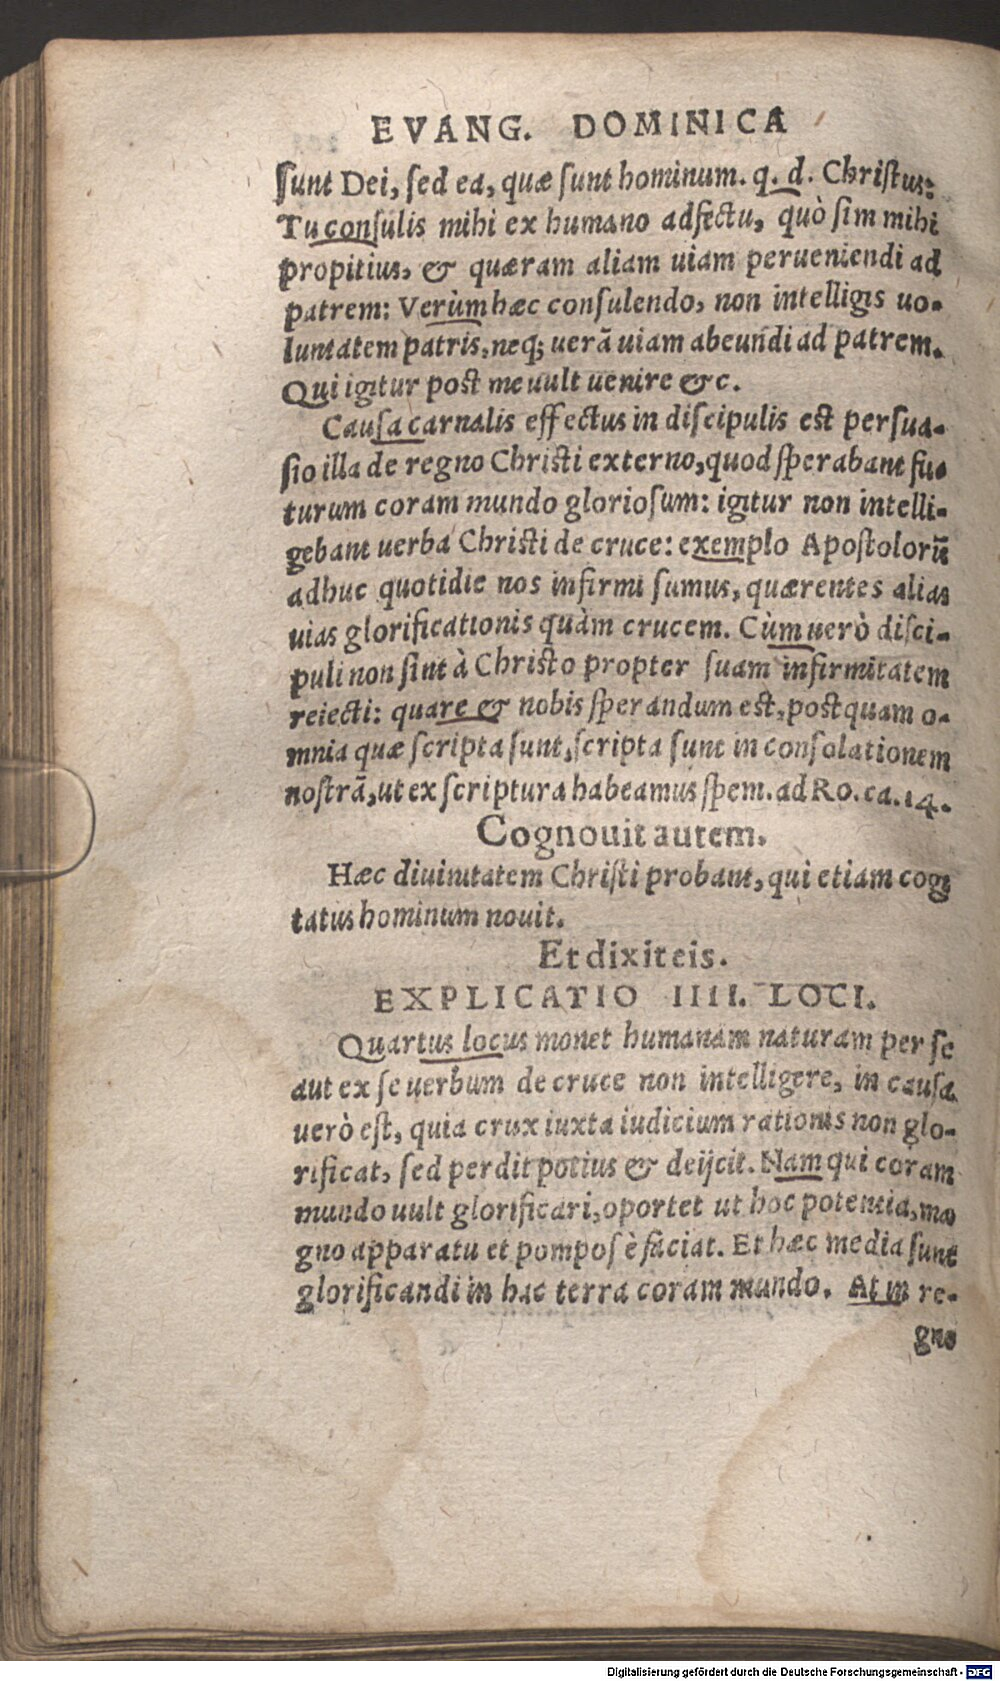 EVANG. DOMINICA
ſunt Dei, ſed ea, quæ ſunt hominum. q. d. Chriſtus:
Tu conſulis mihi ex humano adfectu, quò ſim mihi
propitius, & quæram aliam uiam perueniendi ad
patrem: Verùm hæc conſulendo, non intelligis uo-
luntatem patris, neq; uerã uiam abeundi ad patrem.
Qui igitur post me uult uenire &c.
Cauſa carnalis effectus in diſcipulis est perſua-
ſio illa de regno Chriſti externo, quod ſperabant fu-
turum coram mundo glorioſum: igitur non intelli-
gebant uerba Chriſti de cruce: exemplo Apoſtolorũ
adhuc quotidie nos infirmi ſumus, quærentes alias
uias glorificationis quàm crucem. Cùm uerò diſci-
puli non ſint à Chriſto propter ſuam infirmitatem
reiecti: quare & nobis ſperandum eſt, poſtquam o-
mnia quæ ſcripta ſunt, ſcripta ſunt in conſolationem
noſtrã, ut ex ſcriptura habeamus ſpem. ad Ro. ca. 14.
Cognouit autem.
Hæc diuinitatem Chriſti probant, qui etiam cogi
tatus hominum nouit.
Et dixit eis.
EXPLICATIO IIII. LOCI.
Quartus locus monet humanam naturam per ſe
aut ex ſe uerbum de cruce non intelligere, in cauſa
uerò eſt, quia crux iuxta iudicium rationis non glo-
rificat, ſed perdit potius & deijcit. Nam qui coram
mundo uult glorificari, oportet ut hoc potentia, ma
gno apparatu et pompoſè faciat. Et hæc media ſunt
glorificandi in hac terra coram mundo. At in re-
gno
Digitalisierung gefördert durch die Deutsche Forschungsgemeinschaft - DFG